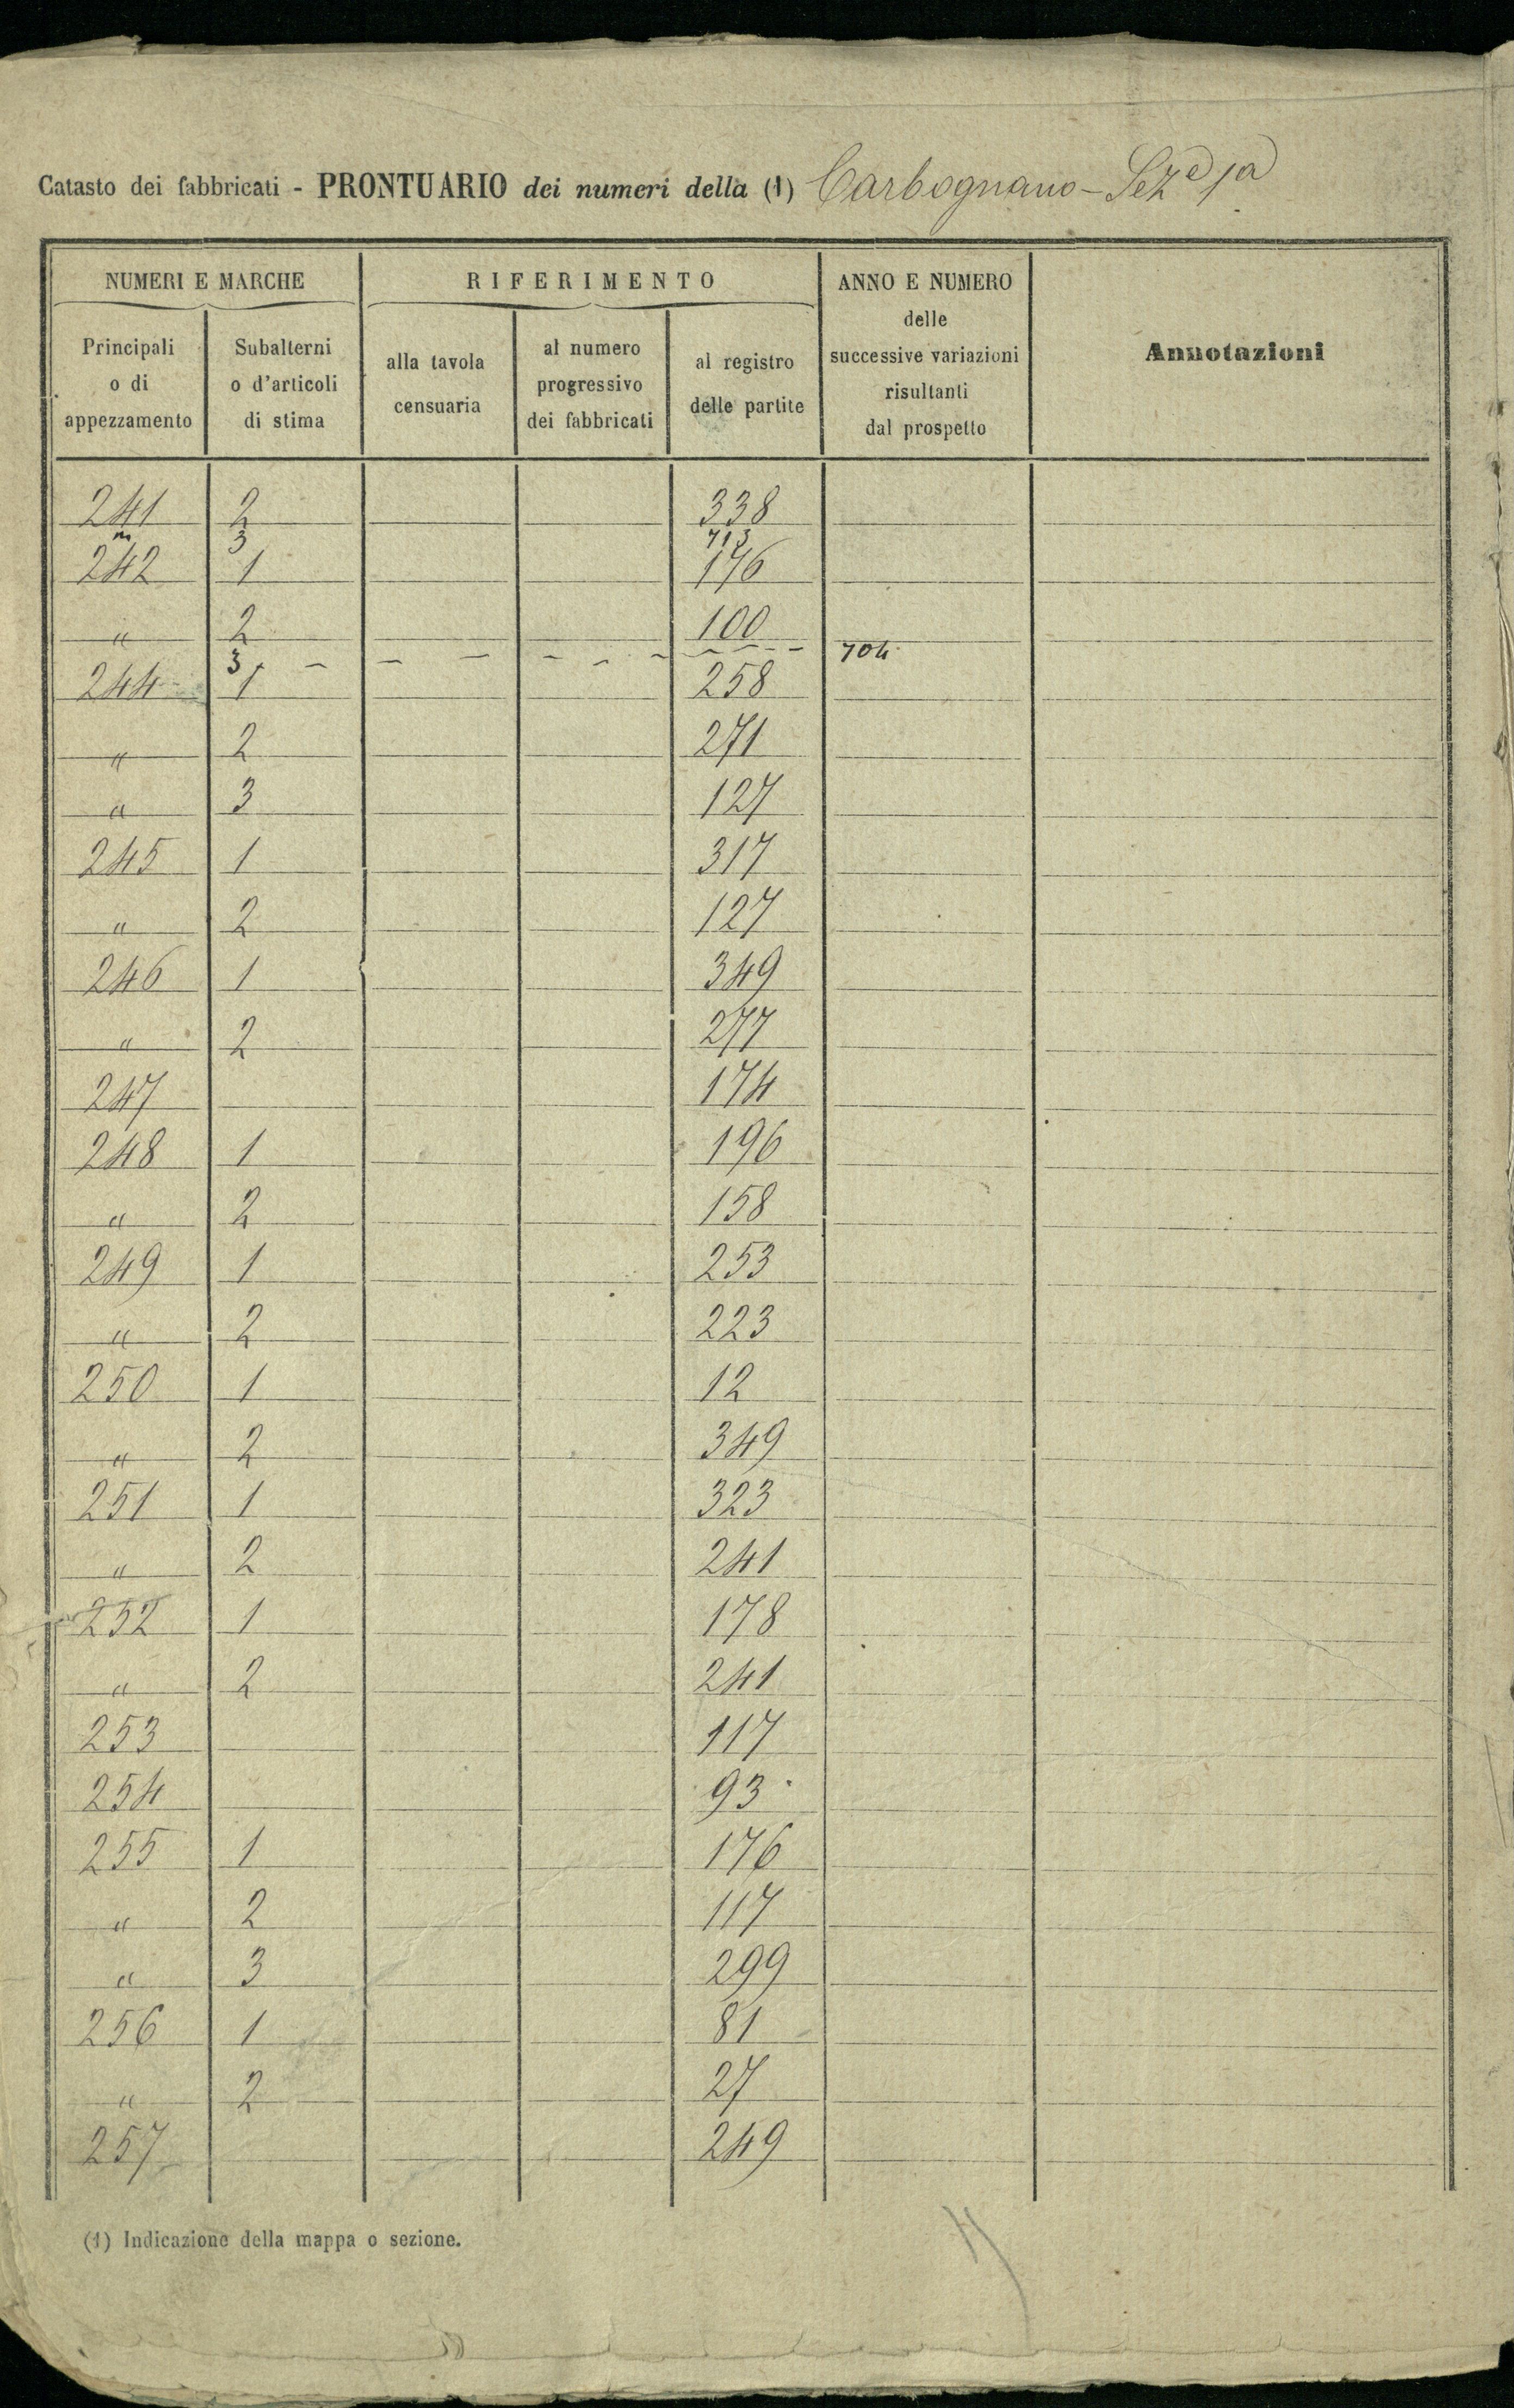 Catasto dei fabbricati - PRONTUARIO dei numeri della (1) Carbognano - Sez.e 1a
NUMERI E MARCHE RIFERIMENTO ANNO E NUMERO delle successive variazioni risultanti dal prospetto Annotazioni
Principali o di appezzamento Subalterni o d'articoli di stima alla tavola censuaria al numero progressivo dei fabbricati al registro delle partite
241 2 338
" 3 713
242 1 176
" 2 100
3 - - - - - - - - - - 704
244 1 258
" 2 271
" 3 127
245 1 317
" 2 127
246 1 349
" 2 277
247 174
248 1 196
" 2 158
249 1 253
" 2 223
250 1 12
" 2 349
251 1 323
" 2 241
252 1 178
" 2 241
253 117
254 93
255 1 176
" 2 117
" 3 299
256 1 81
" 2 27
257 249
(1) Indicazione della mappa o sezione.